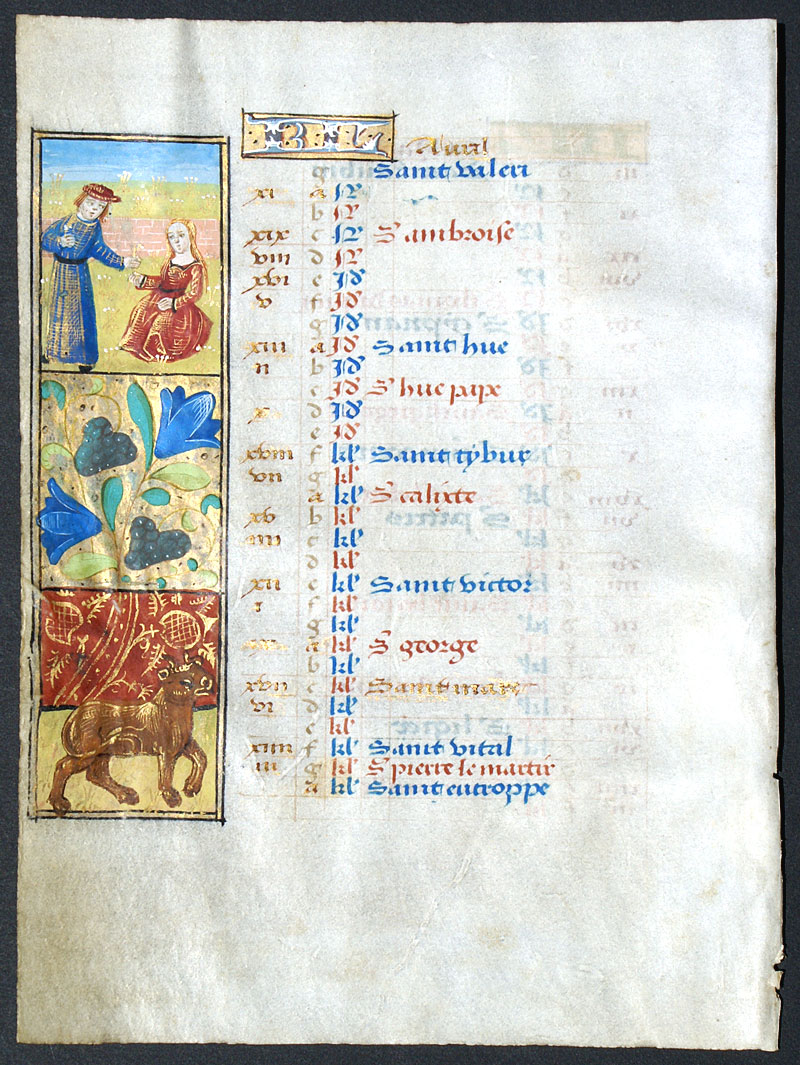 Auril
Saint valeri
xi a N
b N
xix c N S ambroise
viii d N
xvi e Id
v f Id
g Id
xiii a Id Saint hue
ii b Id
c Id S hue pape
x d Id
e Id
xviii f kl Saint tybur
vii g kl
a kl S calixte
xv b kl
iiii c kl
d kl
xii e kl Saint victor
i f kl
g kl
a kl S george
b kl
xvii c kl Saint marc
vi d kl
e kl
xiiii f kl Saint vital
iii g kl S pierre le martir
a kl Saint eutroppe